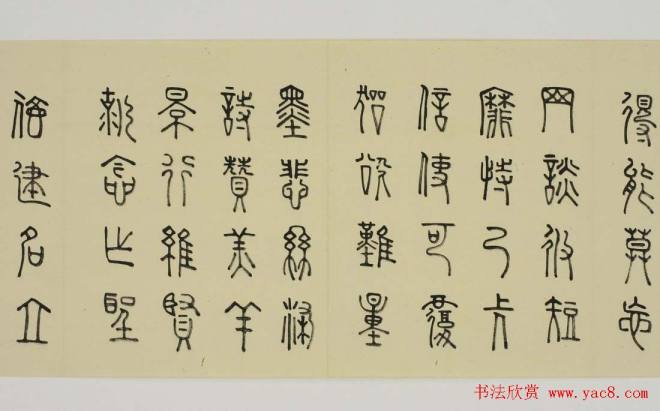 得能莫忘
罔談彼短
靡恃己長
信使可覆
器欲難量
墨悲絲染
詩贊羔羊
景行維賢
剋念作聖
德建名立
书法欣赏 www.yac8.com